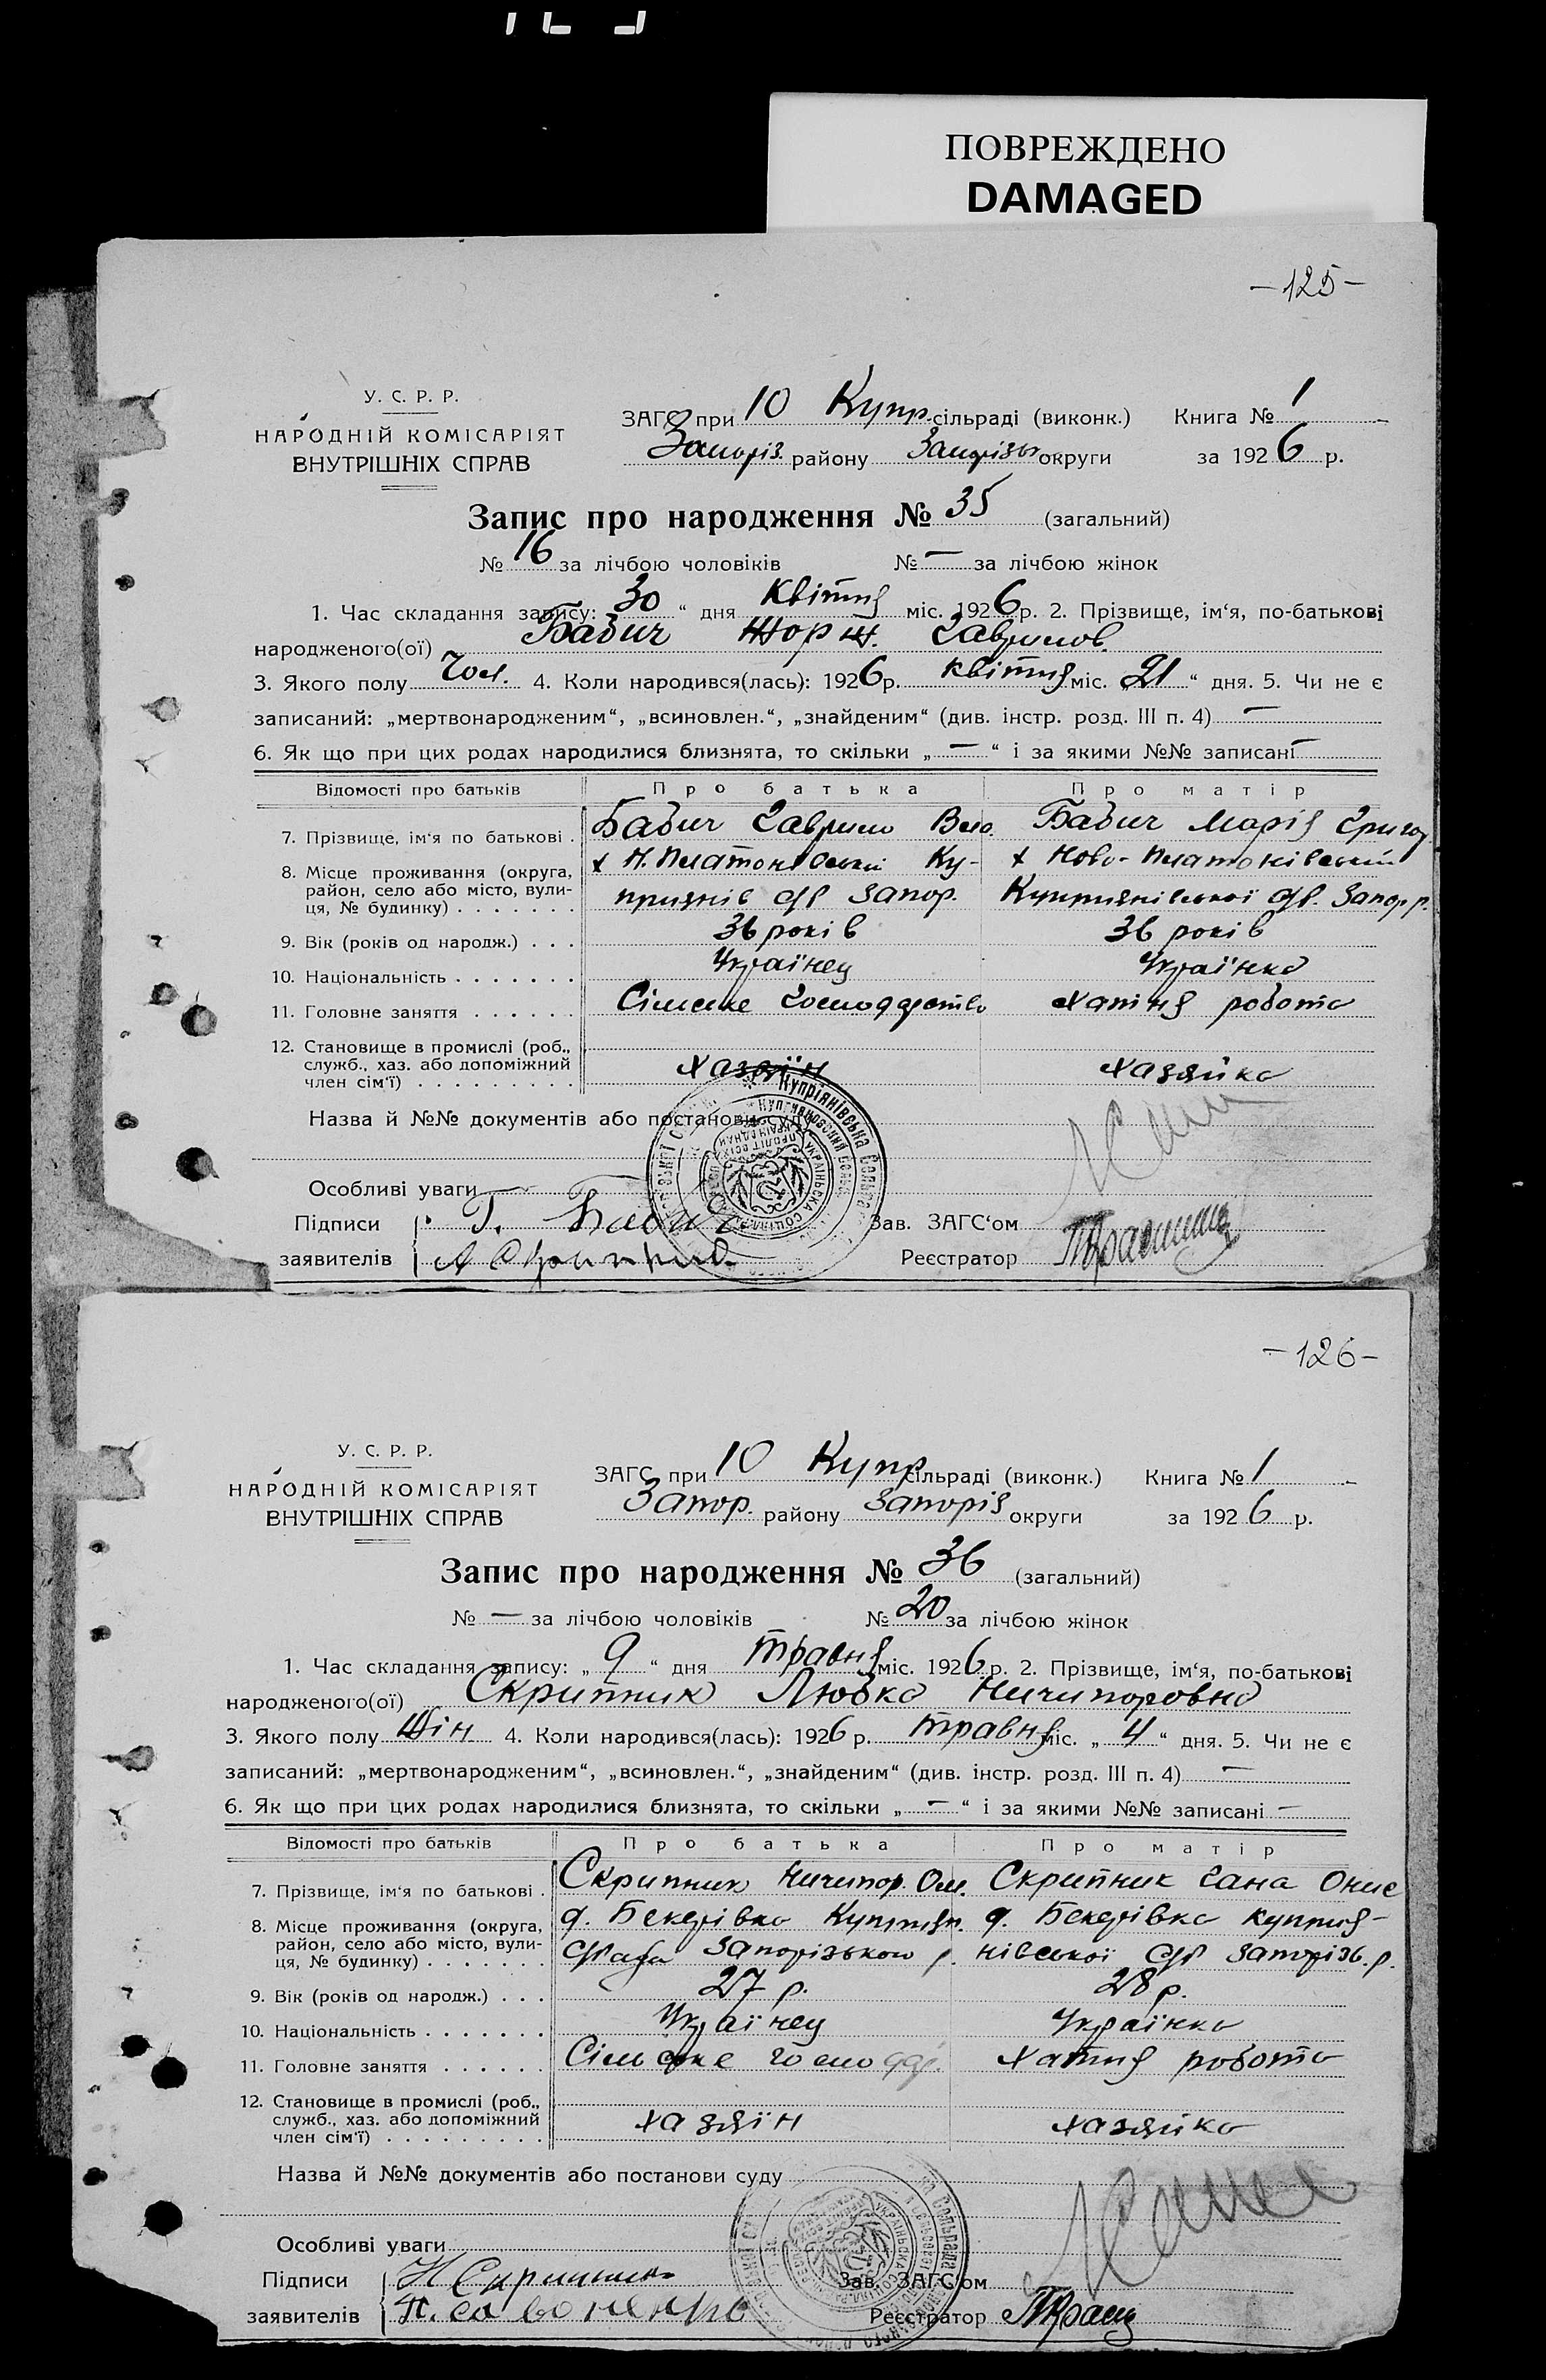 ПОВРЕЖДЕНО
DAMAGED
—125—
У. С. Р. Р.
НАРОДНІЙ КОМІСАРІЯТ
ВНУТРІШНІХ СПРАВ
ЗАГС при 10 Купр. сільраді (виконк.) Книга № 1
Запоріз. району Запорізьк округи за 1926 р.
Запис про народження № 35 (загальний)
№ 16 за лічбою чоловіків № — за лічбою жінок
1. Час складання запису: 30 “ дня Квітня міс. 1926 р. 2. Прізвище, ім‘я, по-батькові
народженого(ої) Бабич Жорж. Гаврилов.
3. Якого полу Чол. 4. Коли народився(лась): 1926 р. квітня міс. „21“ дня. 5. Чи не є
записаний: „мертвонародженим“, „всиновлен.“, „знайденим“ (див. інстр. розд. III п. 4) —
6. Як що при цих родах народилися близнята, то скільки „—“ і за якими №№ записані —
Відомості про батьків Про батька Про матір
7. Прізвище, ім‘я по батькові . Бабич Гаврило Бабич Марія Григор
8. Місце проживання (округа, район, село або місто, вулиця, № будинку) х Н. Платонівський Ку- х Ново-Платонівський
приянів с/р Запор. Куприянівської с/р. Запор р.
9. Вік (років од народж.) . . . 36 років 36 років
10. Національність . . . . . . . Українец Українка
11. Головне заняття . . . . . . Сільське Господарство Хатня робота
12. Становище в промислі (роб., служб., хаз. або допоміжний член сім‘ї) . . . . . . . . . Хазяїн Хазяйка
Назва й №№ документів або постанови суду
Особливі уваги
Підписи Г. Бабич Зав. ЗАГС‘ом
заявителів Реєстратор
—126—
У. С. Р. Р.
НАРОДНІЙ КОМІСАРІЯТ
ВНУТРІШНІХ СПРАВ
ЗАГС при 10 Купр сільраді (виконк.) Книга № 1
Запор. району Запоріз округи за 1926 р.
Запис про народження № 36 (загальний)
№ — за лічбою чоловіків № 20 за лічбою жінок
1. Час складання запису: „9“ дня Травня міс. 1926 р. 2. Прізвище, ім‘я, по-батькові
народженого(ої) Скрипник Любка Ничипоровна
3. Якого полу Жін 4. Коли народився(лась): 1926 р. травня міс. „4“ дня. 5. Чи не є
записаний: „мертвонародженим“, „всиновлен.“, „знайденим“ (див. інстр. розд. III п. 4) —
6. Як що при цих родах народилися близнята, то скільки „—“ і за якими №№ записані —
Відомості про батьків Про батька Про матір
7. Прізвище, ім‘я по батькові . Скрипник Ничипор. Ом. Скрипник Гана Онис
8. Місце проживання (округа, район, село або місто, вулиця, № будинку) д. Бекарівка Куприян. д. Бекарівка куприя-
Запорізькою р. нівської с/р Запорізь. р.
9. Вік (років од народж.) . . . 27 р. 28 р.
10. Національність . . . . . . . Українец Українка
11. Головне заняття . . . . . . Сільське господар. Хатня робота
12. Становище в промислі (роб., служб., хаз. або допоміжний член сім‘ї) . . . . . . . . . хазяїн хазяйка
Назва й №№ документів або постанови суду
Особливі уваги
Підписи Н Скрипник Зав. ЗАГС‘ом
заявителів Реєстратор